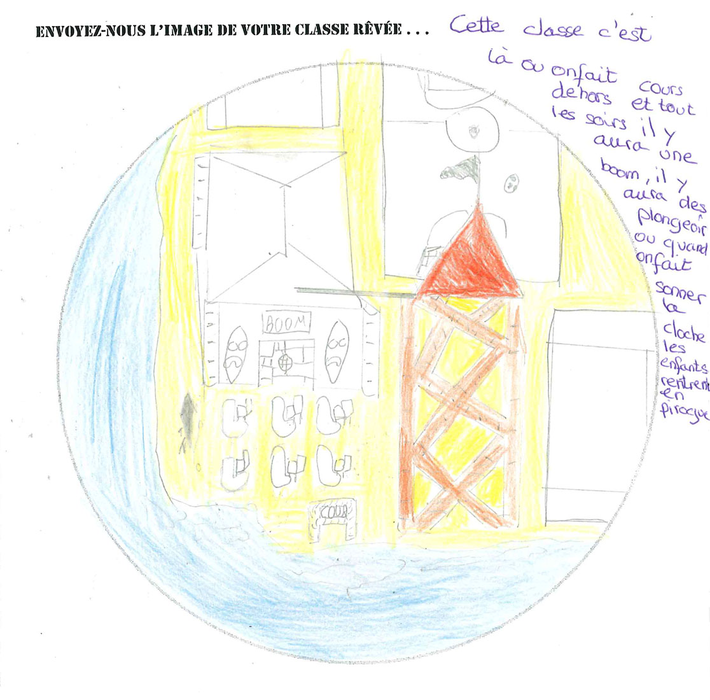 ENVOYEZ-NOUS L'IMAGE DE VOTRE CLASSE RÊVÉE . . .
Cette classe c'est
là ou onfait cours
dehors et tout
les soirs il y
aura une
boom, il y
aura des
plongeoir
ou quand
onfait
sonner
la
cloche
les
enfants
rentrent
en
pirogue
BOOM
COUR